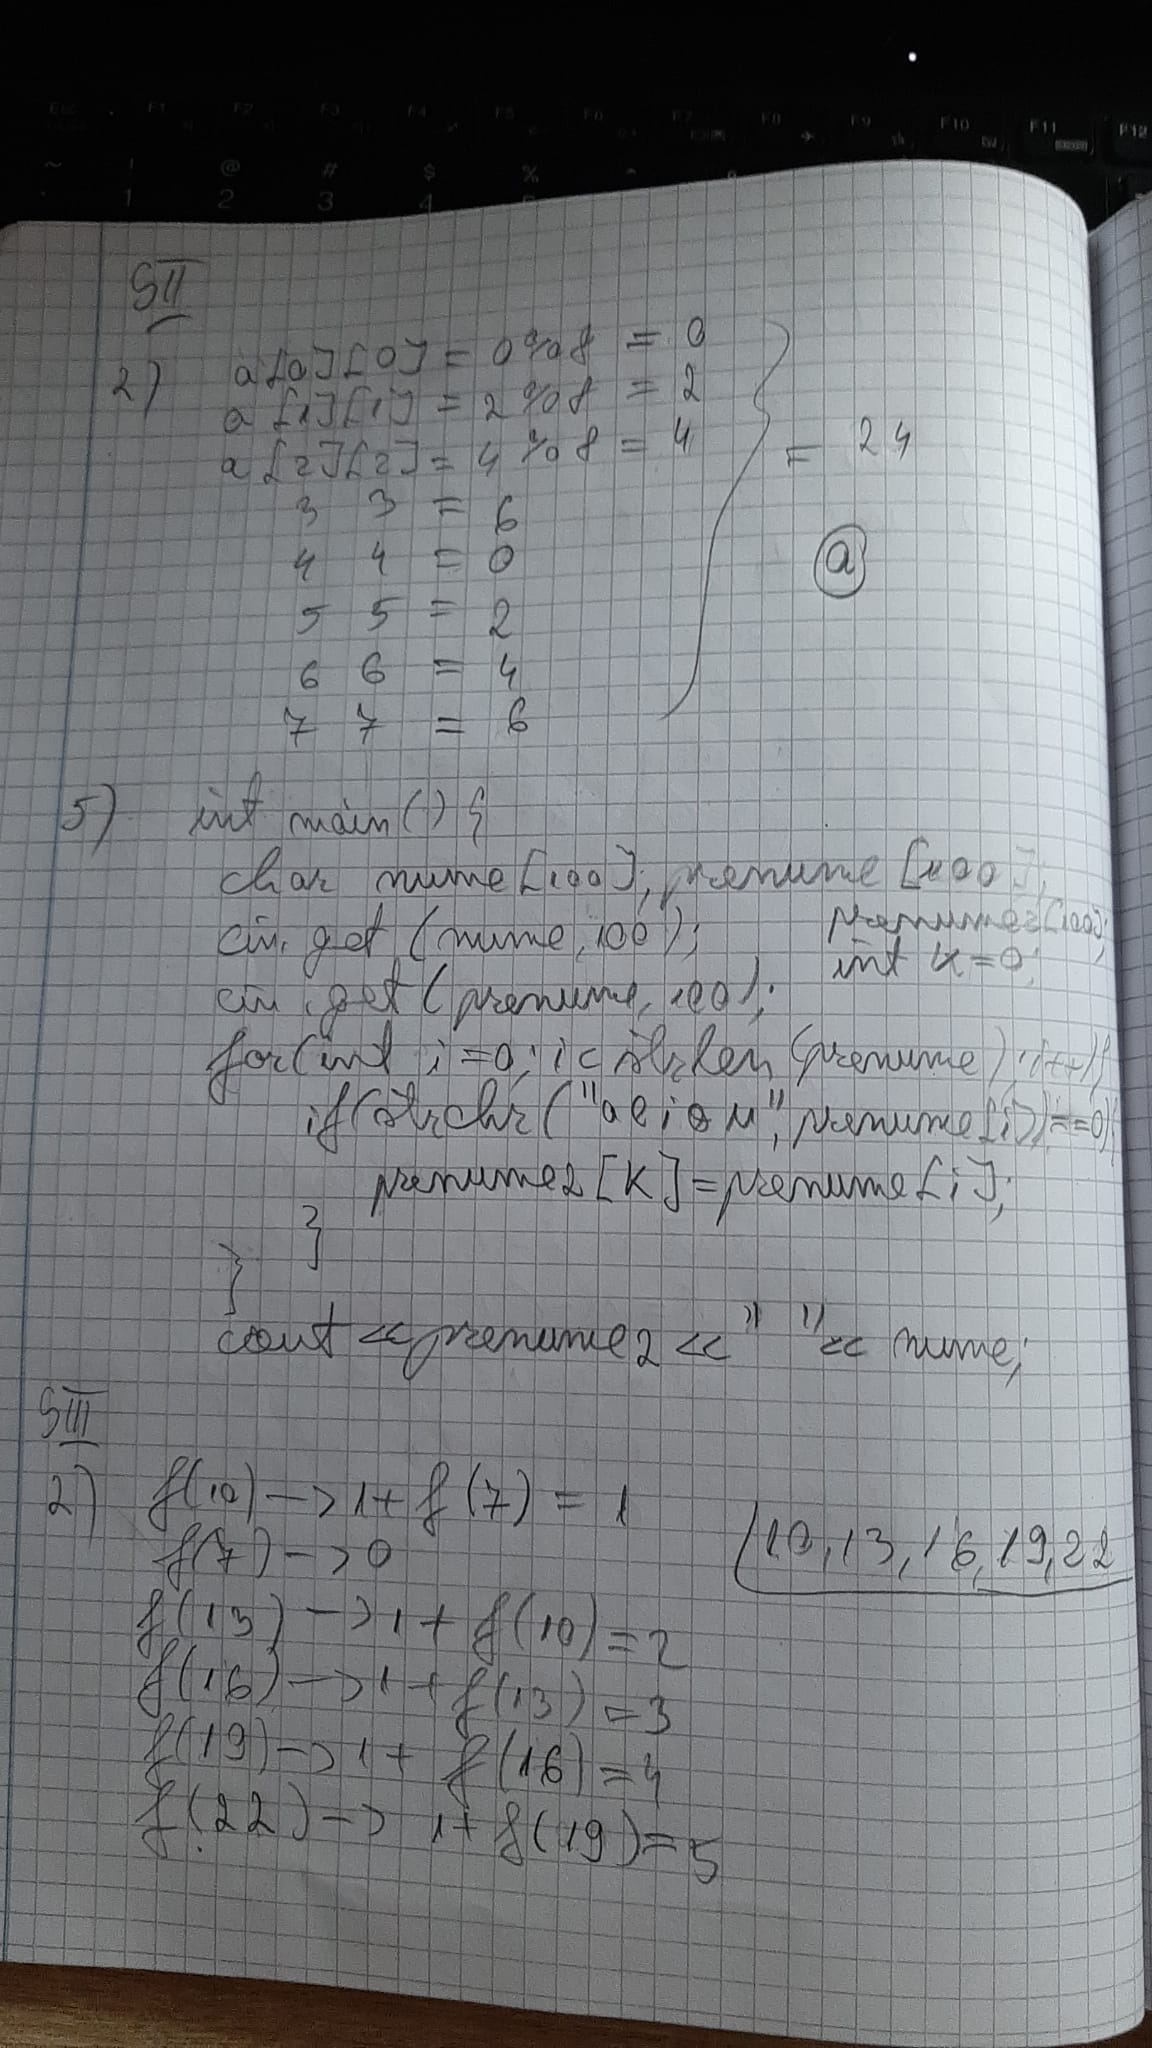 Esc F1 F2 F3 F4 F5 F6 F7 F8 F9 F10 F11 F12
~ ! @ # $ %
1 2 3 4
SII
2) a[0][0] = 0%8 = 0
a[1][1] = 2%8 = 2
a[2][2] = 4%8 = 4
= 24
3 3 = 6
4 4 = 0
a
5 5 = 2
6 6 = 4
7 7 = 6
5) int main() {
char nume[100], prenume[100],
prenume2[100];
cin.get(nume, 100);
int k=0;
cin.get(prenume, 100);
for(int i=0; i<strlen(prenume); i++){
if(strchr("aeiou", prenume[i])==0){
prenume2[k]=prenume[i];
}
}
cout<<prenume2<<" "<< nume;
SIII
2) f(10) -> 1+ f(7) = 1
10, 13, 16, 19, 22
f(7) -> 0
f(13) -> 1 + f(10) = 2
f(16) -> 1 + f(13) = 3
f(19) -> 1 + f(16) = 4
f(22) -> 1+ f(19) = 5